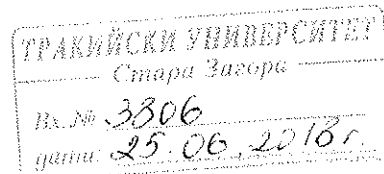 ТРАКИЙСКИ УНИВЕРСИТЕТ
Стара Загора
Вх. № 3306
дата: 25.06.2018 г.